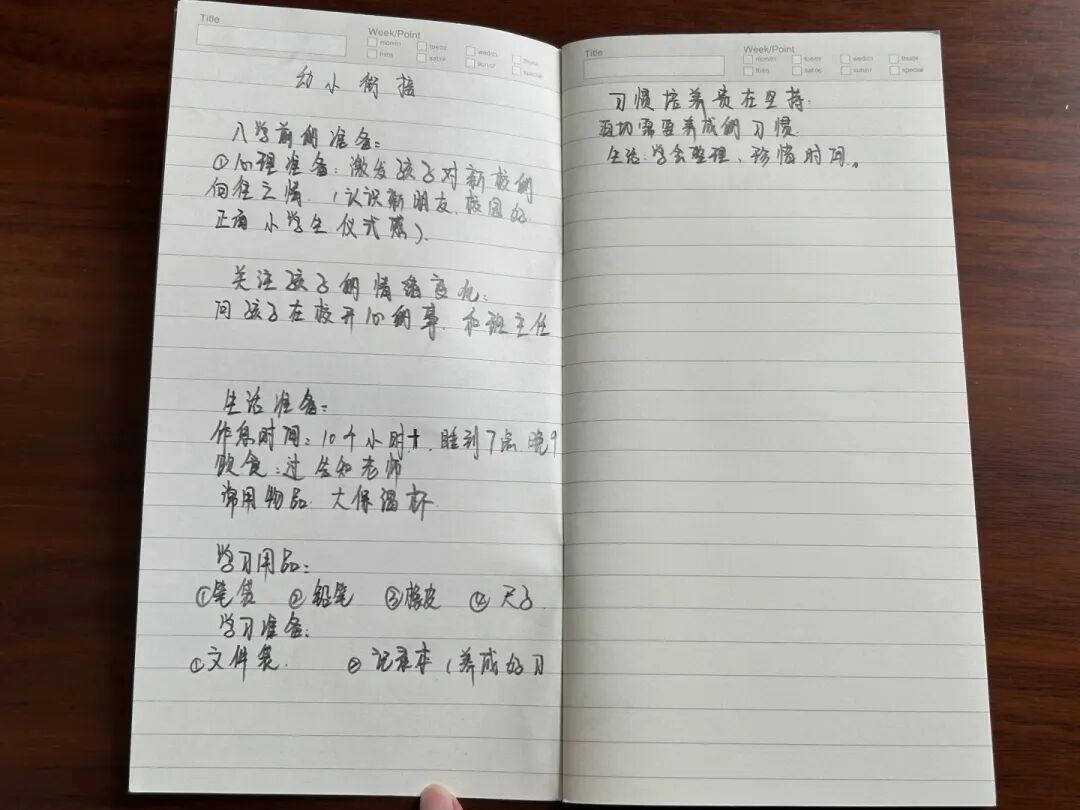 Title
Week/Point
mon/m tues/t weds/s thus/t
thirs satos sun/7 special
幼小衔接
入学前的准备:
①心理准备:激发孩子对新校的
向往之情.(认识新朋友.校园的
正面 小学生仪式感).
关注孩子的情绪变化:
问孩子在校开心的事.和班主任
生活准备:
作息时间:10个小时+.睡到7点.晚9
饮食:过 告知老师
常用物品:大保温杯
学习用品:
①笔袋 ②铅笔 ③橡皮 ④尺子.
学习准备:
①文件袋. ②记录本(养成好习
Title
Week/Point
mon/m tues/t weds/s thus/t
thirs satos sun/7 special
习惯培养贵在坚持.
需要养成的习惯.
生活:学会整理、珍惜时间。